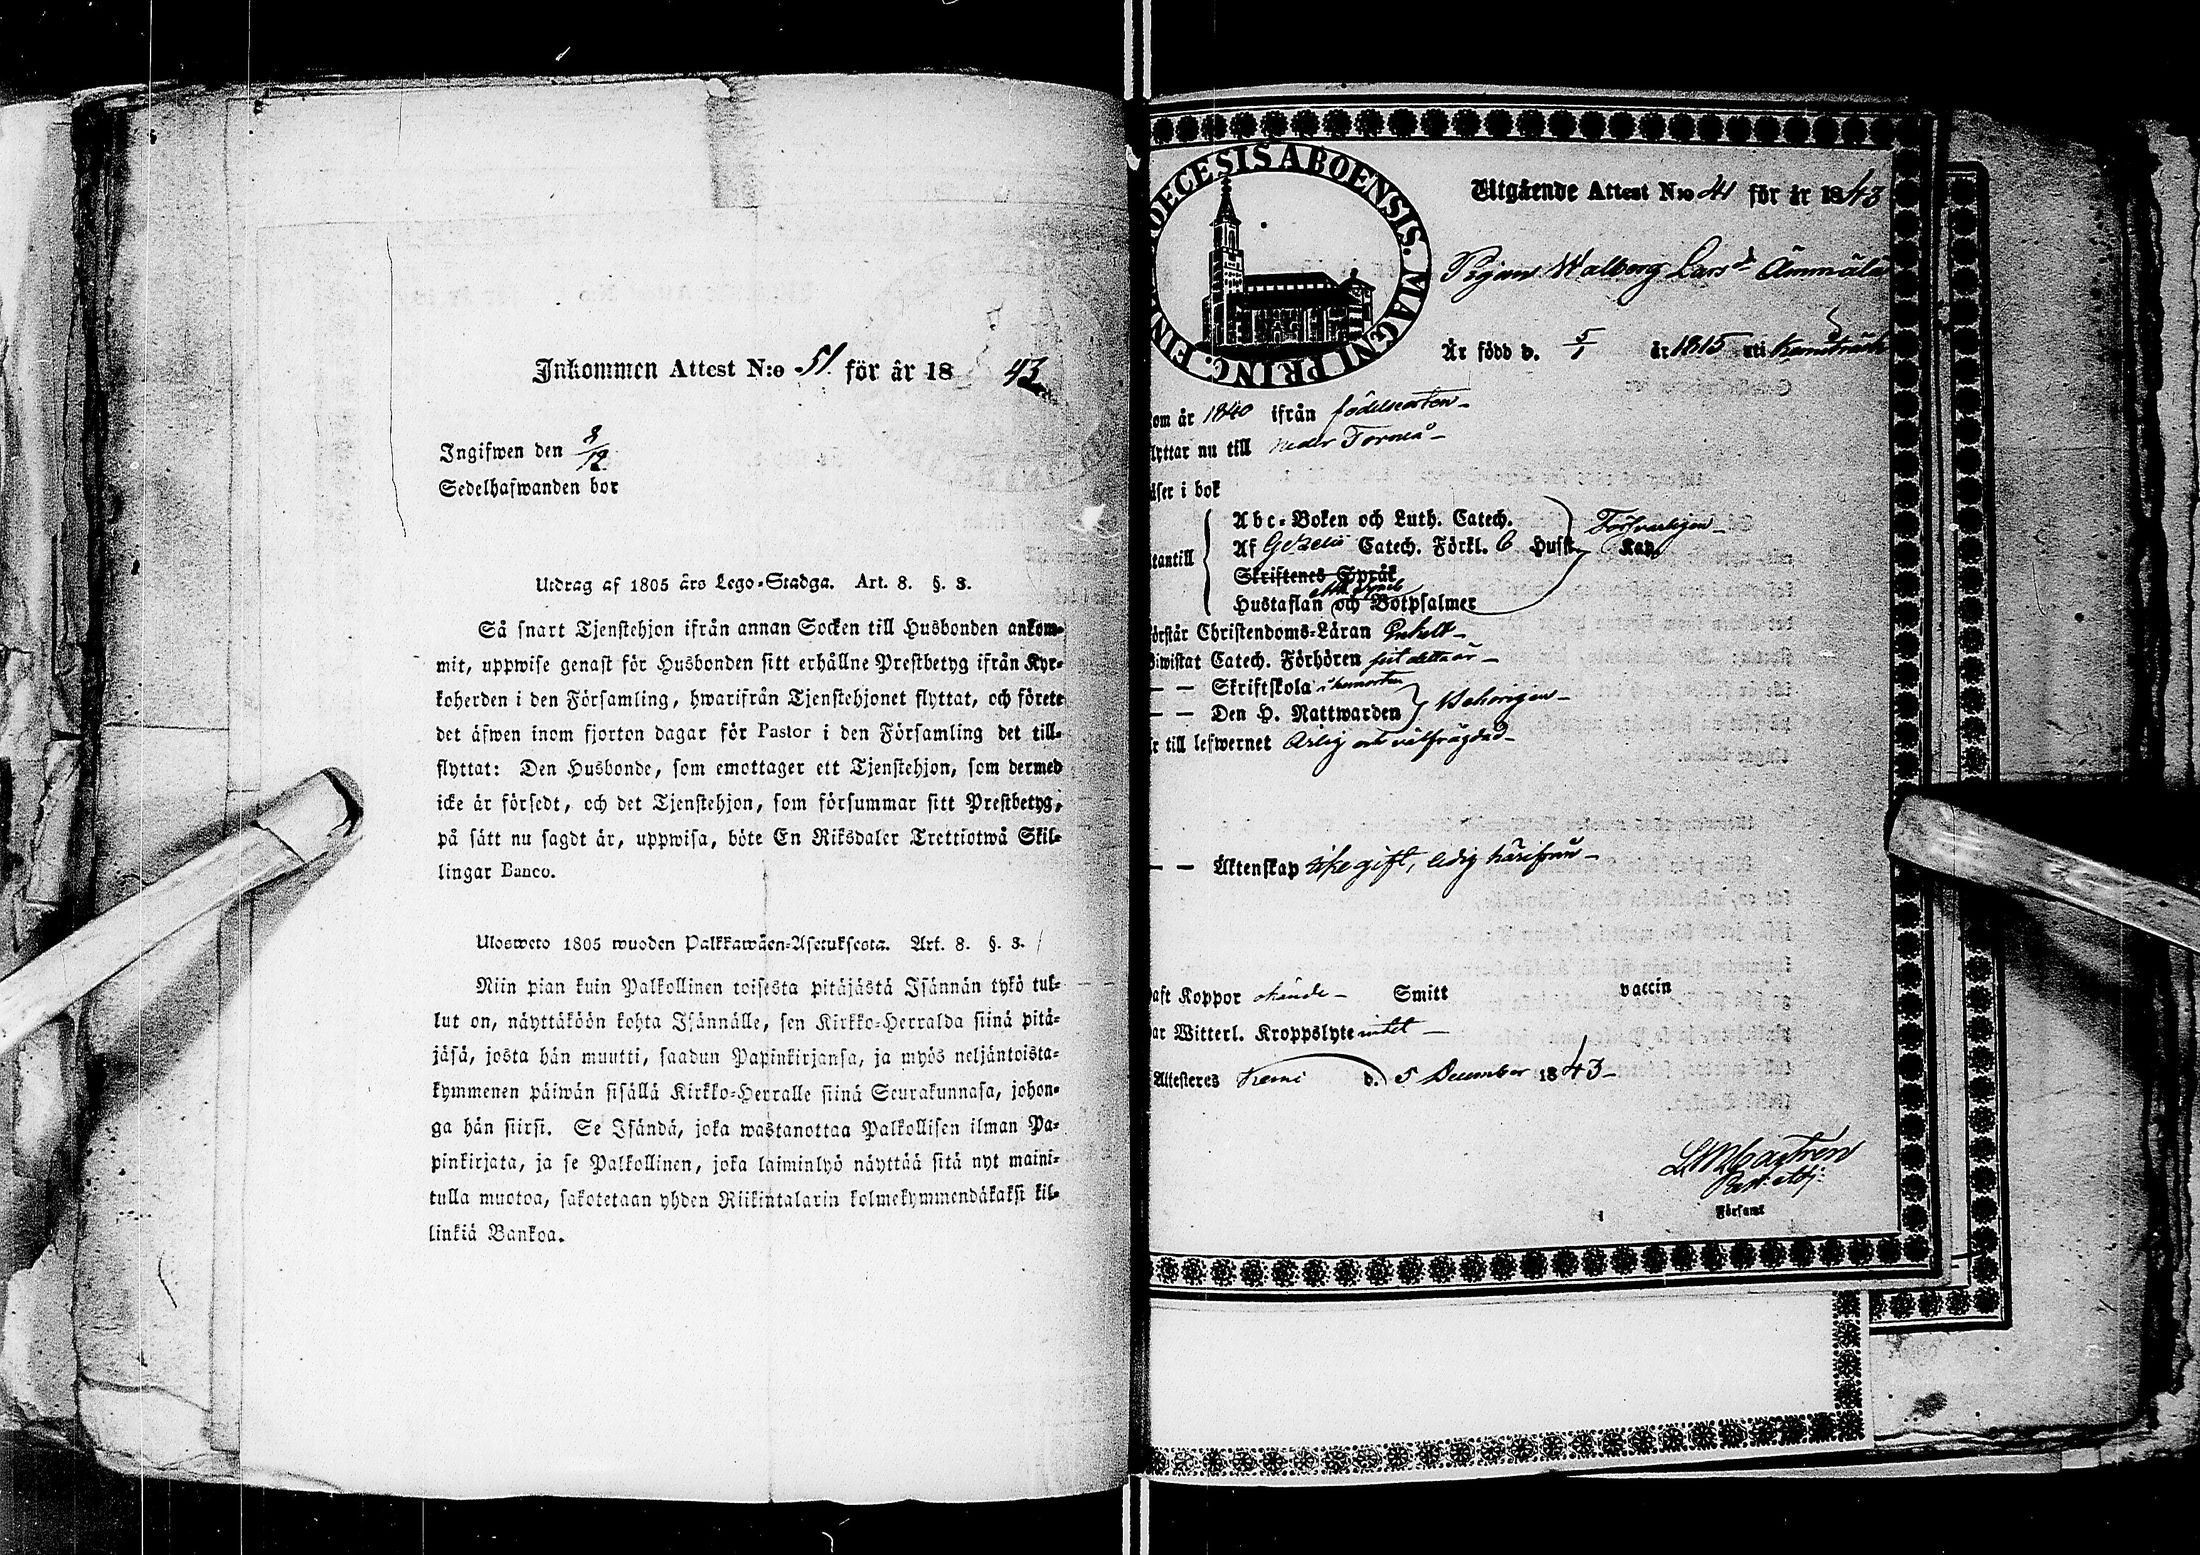 Inkommen Attest N:o 51. för år 1843
Ingifwen den 8/12
Sedelhafwanden bor
Utdrag af 1805 års Lego-Stadga. Art. 8. §. 3.
Så snart Tjenstehjon ifrån annan Socken till Husbonden ankom-
mit, uppwise genast för Husbonden sitt erhållne Prestbetyg ifrån Kyr-
koherden i den Församling, hwarifrån Tjenstehjonet flyttat, och förete
det äfwen inom fjorton dagar för Pastor i den Församling det till-
flyttat: Den Husbonde, som emottager ett Tjenstehjon, som dermed
icke är försedt, och det Tjenstehjon, som försummar sitt Prestbetyg,
på sätt nu sagdt är, uppwisa, böte En Riksdaler Trettiotwå Skil-
lingar Banco.
Ulosweto 1805 wuoden Palkkawäen-Asetuksesta. Art. 8. §. 3.
Niin pian kuin Palkollinen toisesta pitäjästä Isännän tykö tul-
lut on, näyttäköön kohta Isännälle, sen Kirkko-Herralda siinä pitä-
jäsä, josta hän muutti, saadun Papinkirjansa, ja myös neljäntoista-
kymmenen päiwän sisällä Kirkko-Herralle siinä Seurakunnasa, johon-
ga hän siirsi. Se Isändä, joka wastanottaa Palkollisen ilman Pa-
pinkirjata, ja se Palkollinen, joka laiminlyö näyttää sitä nyt maini-
tulla muotoa, sakotetaan yhden Riikintalarin kolmekymmendäkaksi kil-
linkiä Bankoa.
DECESIS ABOENSIS. MAGNI PRINC. FIN
Utgående Attest N:o 41 för år 1843
Pigan Walborg Lars d:
Är född d. 5/1 år 1815 uti
kom år 1840 ifrån födelseorten
flyttar nu till neder Torneå
läser i bok
utantill
Abc-Boken och Luth. Catech.
Af Gezelii Catech. Förkl. 6 Husst. Kap.
Försvarligen
Skriftenes Språk
Hustaflan och Botpsalmer
förstår Christendoms-Läran Enkelt
Biwistat Catech. Förhören sist detta år
— — Skriftskola i hemorten
— — Den H. Nattwarden Behörigen
är till lefwernet Ärlig och välfrägdad
— — Äktenskap icke gift, ledig härifrån
haft Koppor ökända Smitt vaccin
har Witterl. Kroppslyte intet
Attesteres Kemi d. 5 December 1843
Castrén
Past. Adj:
Församl